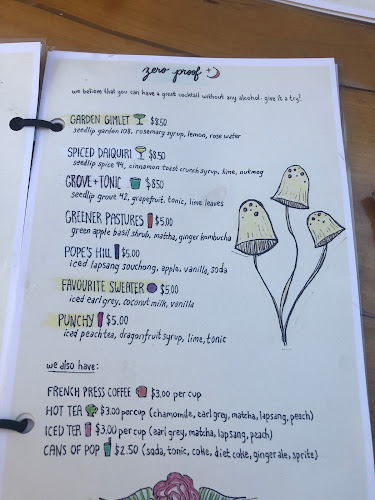 zero proof
we believe that you can have a great cocktail without any alcohol. give it a try!
GARDEN GIMLET $8.50
seedlip garden 108, rosemary syrup, lemon, rose water
SPICED DAIQUIRI $8.50
seedlip spice 94, cinnamon toast crunch syrup, lime, nutmeg
GROVE + TONIC $8.50
seedlip grove 42, grapefruit, tonic, lime leaves
GREENER PASTURES $5.00
green apple basil shrub, matcha, ginger kombucha
POPE'S HILL $5.00
iced lapsang souchong, apple, vanilla, soda
FAVOURITE SWEATER $5.00
iced earl grey, coconut milk, vanilla
PUNCHY $5.00
iced peach tea, dragonfruit syrup, lime, tonic
we also have:
FRENCH PRESS COFFEE $3.00 per cup
HOT TEA $3.00 per cup (chamomile, earl grey, matcha, lapsang, peach)
ICED TEA $3.00 per cup (earl grey, matcha, lapsang, peach)
CANS OF POP $2.50 (soda, tonic, coke, diet coke, ginger ale, sprite)